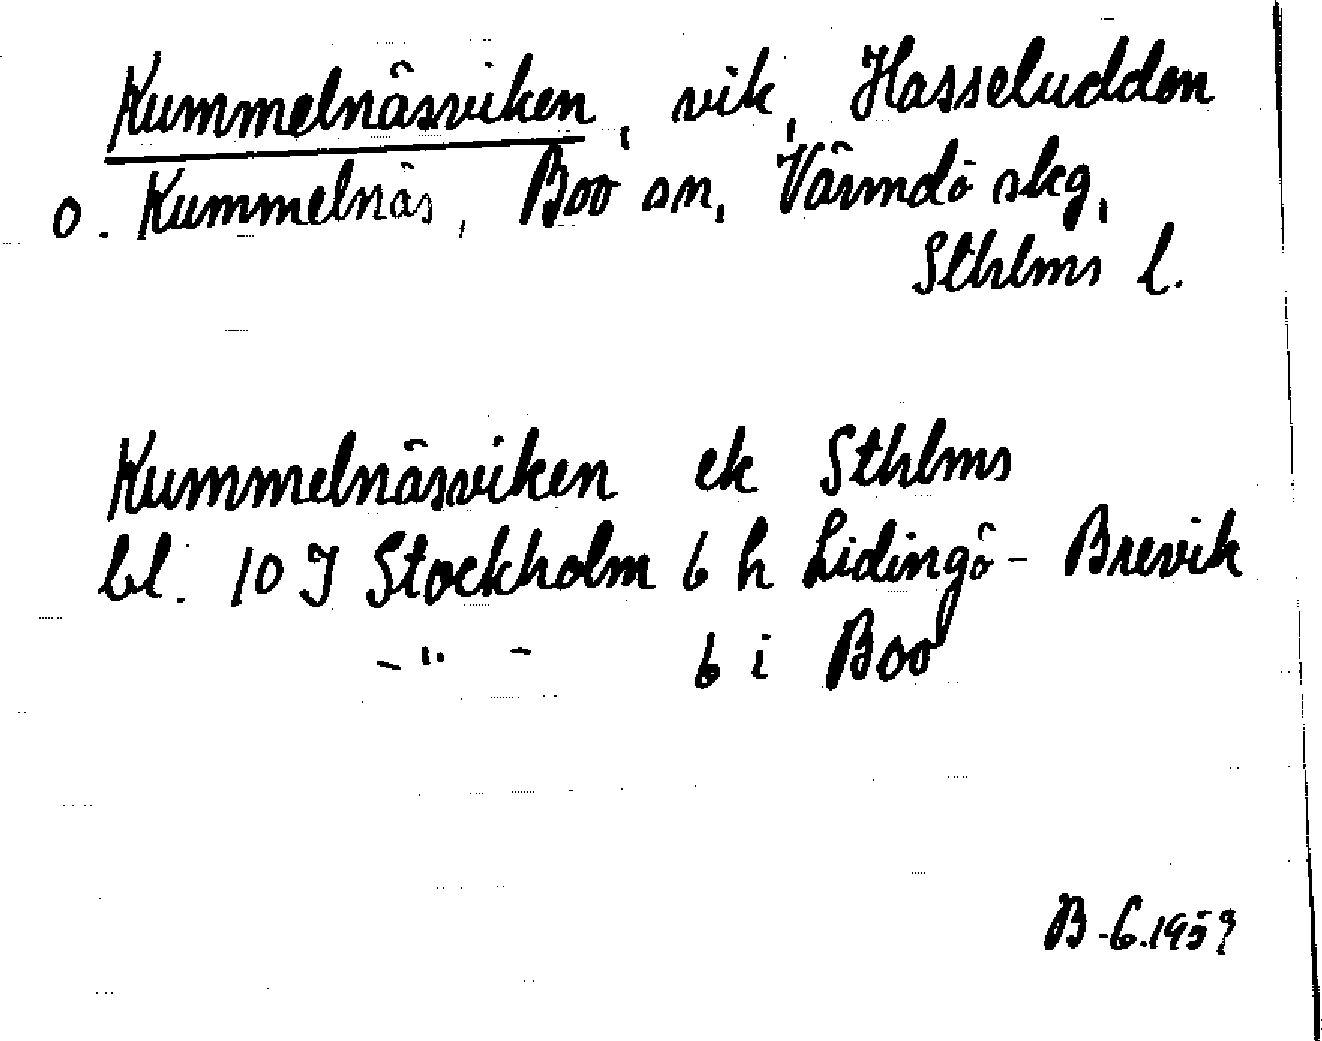 Kummelnäsviken, vik, Hasseludden
o. Kummelnäs, Boo sn, Värmdö skg,
Sthlms l.
Kummelnäsviken ek Sthlms
bl. 10 J Stockholm 6 h Lidingö - Brevik
- " - 6 i Boo
B-G.1959